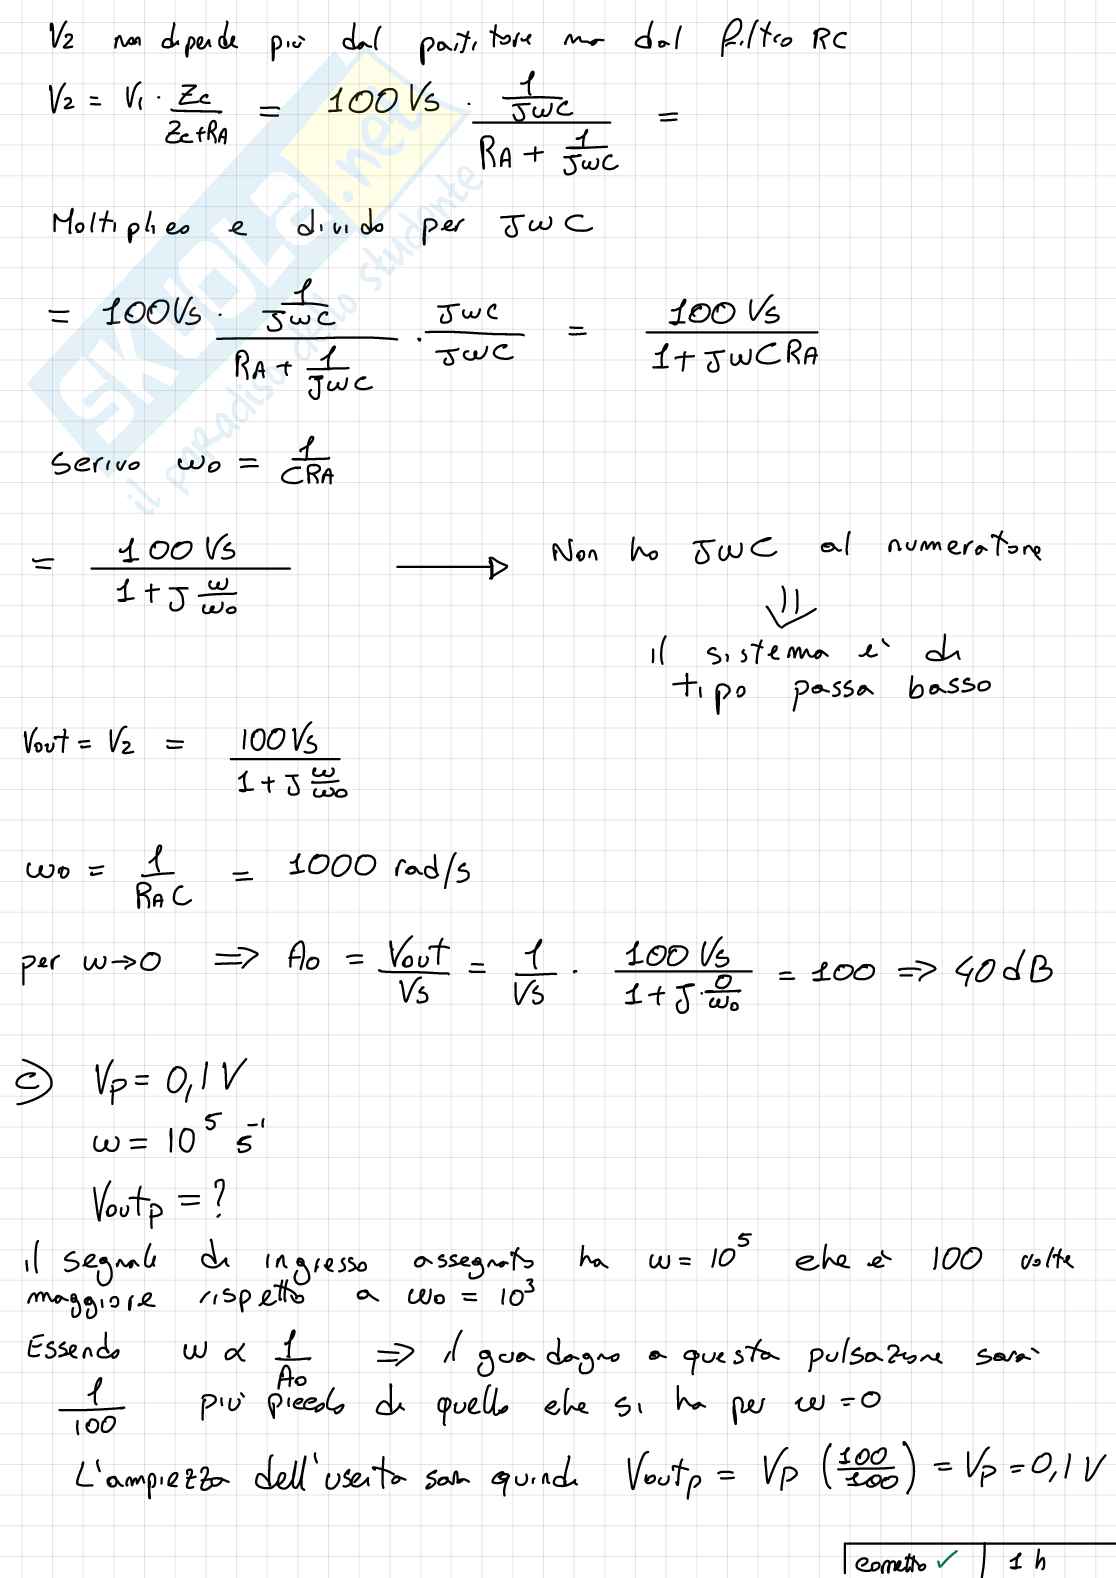 V2 non dipende più dal partitore ma dal filtro RC
V2 = V1 · Zc/(Zc+RA) = 100 Vs · (1/JwC)/(RA + 1/JwC) =
Moltiplico e divido per JwC
= 100Vs · (1/JwC)/(RA + 1/JwC) · JwC/JwC = 100 Vs/(1 + JwCRA)
Scrivo wo = 1/CRA
= 100 Vs/(1 + J w/wo) → Non ho JwC al numeratore
⇓
il sistema è di
tipo passa basso
Vout = V2 = 100 Vs/(1 + J w/wo)
wo = 1/(RA C) = 1000 rad/s
per w→0 ⇒ Ao = Vout/Vs = 1/Vs · 100 Vs/(1 + J · 0/wo) = 100 ⇒ 40 dB
c) Vp = 0,1 V
w = 10^5 s^-1
Voutp = ?
il segnale di ingresso assegnato ha w = 10^5 che è 100 volte
maggiore rispetto a wo = 10^3
Essendo w ∝ 1/Ao ⇒ il guadagno a questa pulsazione sarà
1/100 più piccolo di quello che si ha per w = 0
L'ampiezza dell'uscita sarà quindi Voutp = Vp (100/100) = Vp = 0,1 V
corretto ✓ | 1 h
SKUOLA.net
il paradiso dello studente